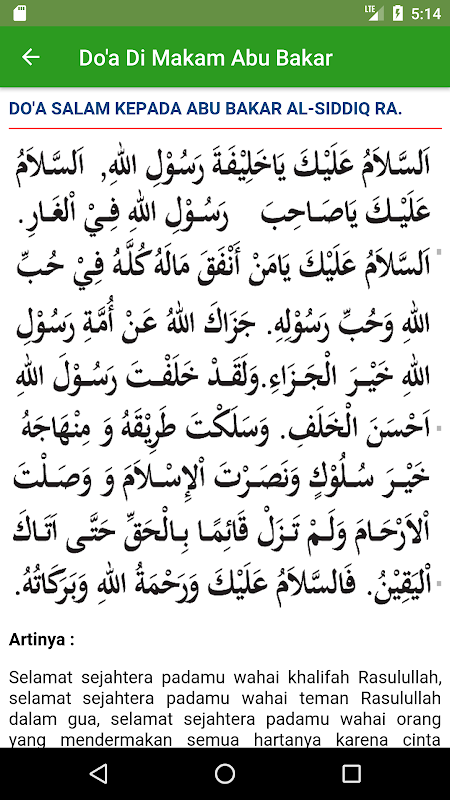 LTE 5:14
Do'a Di Makam Abu Bakar
DO'A SALAM KEPADA ABU BAKAR AL-SIDDIQ RA.
اَلسَّلاَمُ عَلَيْكَ يَاخَلِيْفَةَ رَسُوْلِ اللهِ, اَلسَّلاَمُ
عَلَيْكَ يَاصَاحِبَ رَسُوْلِ اللهِ فِيْ الْغَارِ.
اَلسَّلاَمُ عَلَيْكَ يَامَنْ أَنْفَقَ مَالَهُ كُلَّهُ فِيْ حُبِّ
اللهِ وَحُبِّ رَسُوْلِهِ. جَزَاكَ اللهُ عَنْ أُمَّةِ رَسُوْلِ
اللهِ خَيْرَ الْجَزَاءِ.وَلَقَدْ خَلَفْتَ رَسُوْلَ اللهِ
اَحْسَنَ الْخَلَفِ. وَسَلَكْتَ طَرِيْقَهُ وَ مِنْهَاجَهُ
خَيْرَ سُلُوْكٍ وَنَصَرْتَ اْلإِسْلاَمَ وَ وَصَلْتَ
اْلاَرْحَامَ وَلَمْ تَزَلْ قَائِمًا بِالْحَقِّ حَتَّى اَتَاكَ
الْيَقِيْنُ. فَالسَّلاَمُ عَلَيْكَ وَرَحْمَةُ اللهِ وَبَرَكَاتُهُ.
Artinya :
Selamat sejahtera padamu wahai khalifah Rasulullah,
selamat sejahtera padamu wahai teman Rasulullah
dalam gua, selamat sejahtera padamu wahai orang
yang mendermakan semua hartanya karena cinta